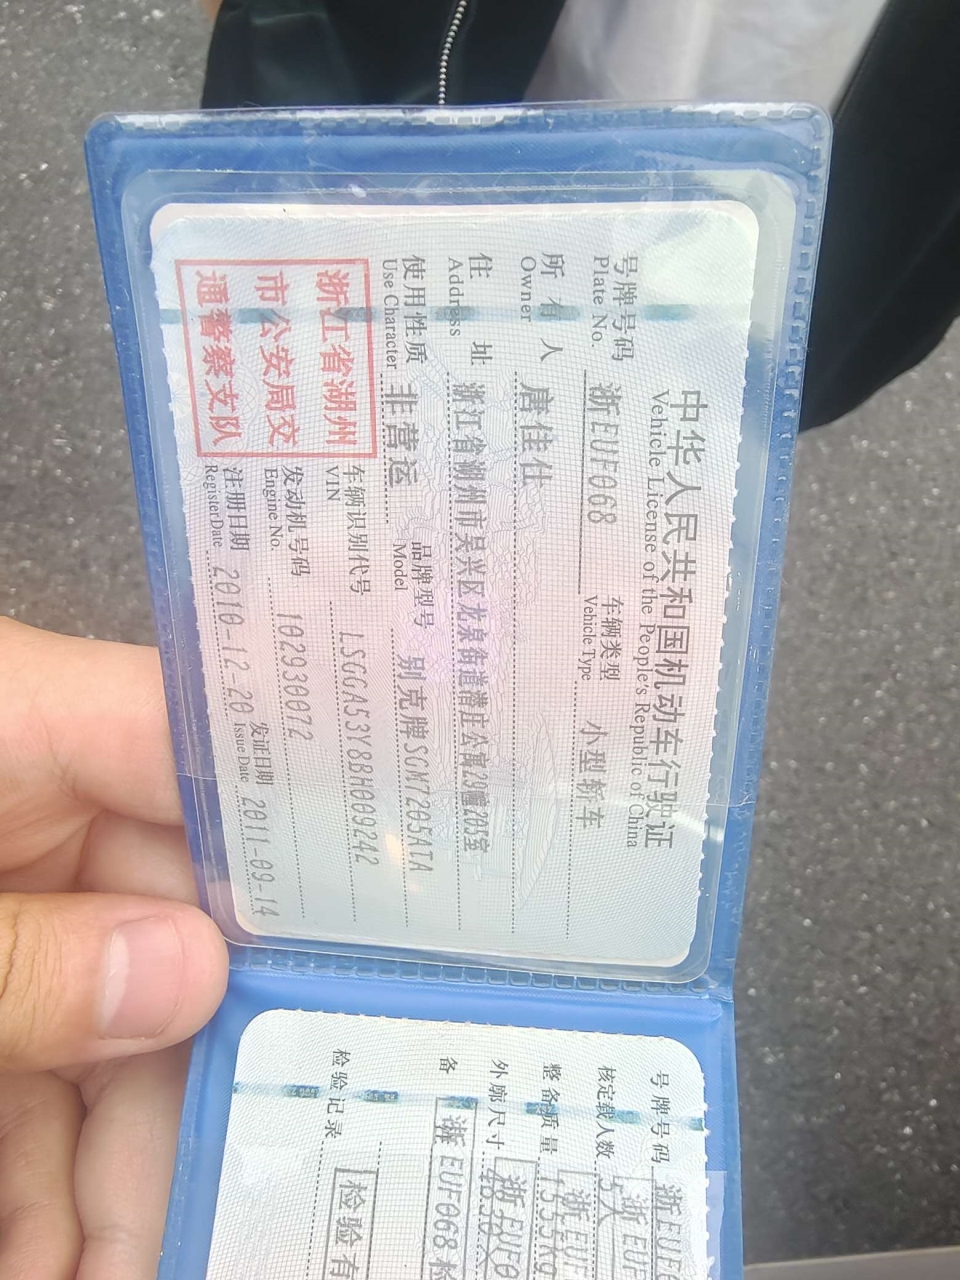 中华人民共和国机动车行驶证
Vehicle License of the People's Republic of China
号牌号码 浙EUF068 车辆类型 小型轿车
Plate No. Vehicle Type
所有人 唐佳仕
Owner
住址 浙江省湖州市吴兴区龙泉街道潜庄公寓29幢205室
Address
使用性质 非营运 品牌型号 别克牌SGM7205ATA
Use Character Model
浙江省湖州
市公安局交
通警察支队
车辆识别代号 LSGGA53Y8BH009242
VIN
发动机号码 102930072
Engine No.
注册日期 2010-12-20 发证日期 2011-09-14
Register Date Issue Date
号牌号码
核定载人数
整备质量
外廓尺寸
备 浙EUF068 检
检验记录 检验有